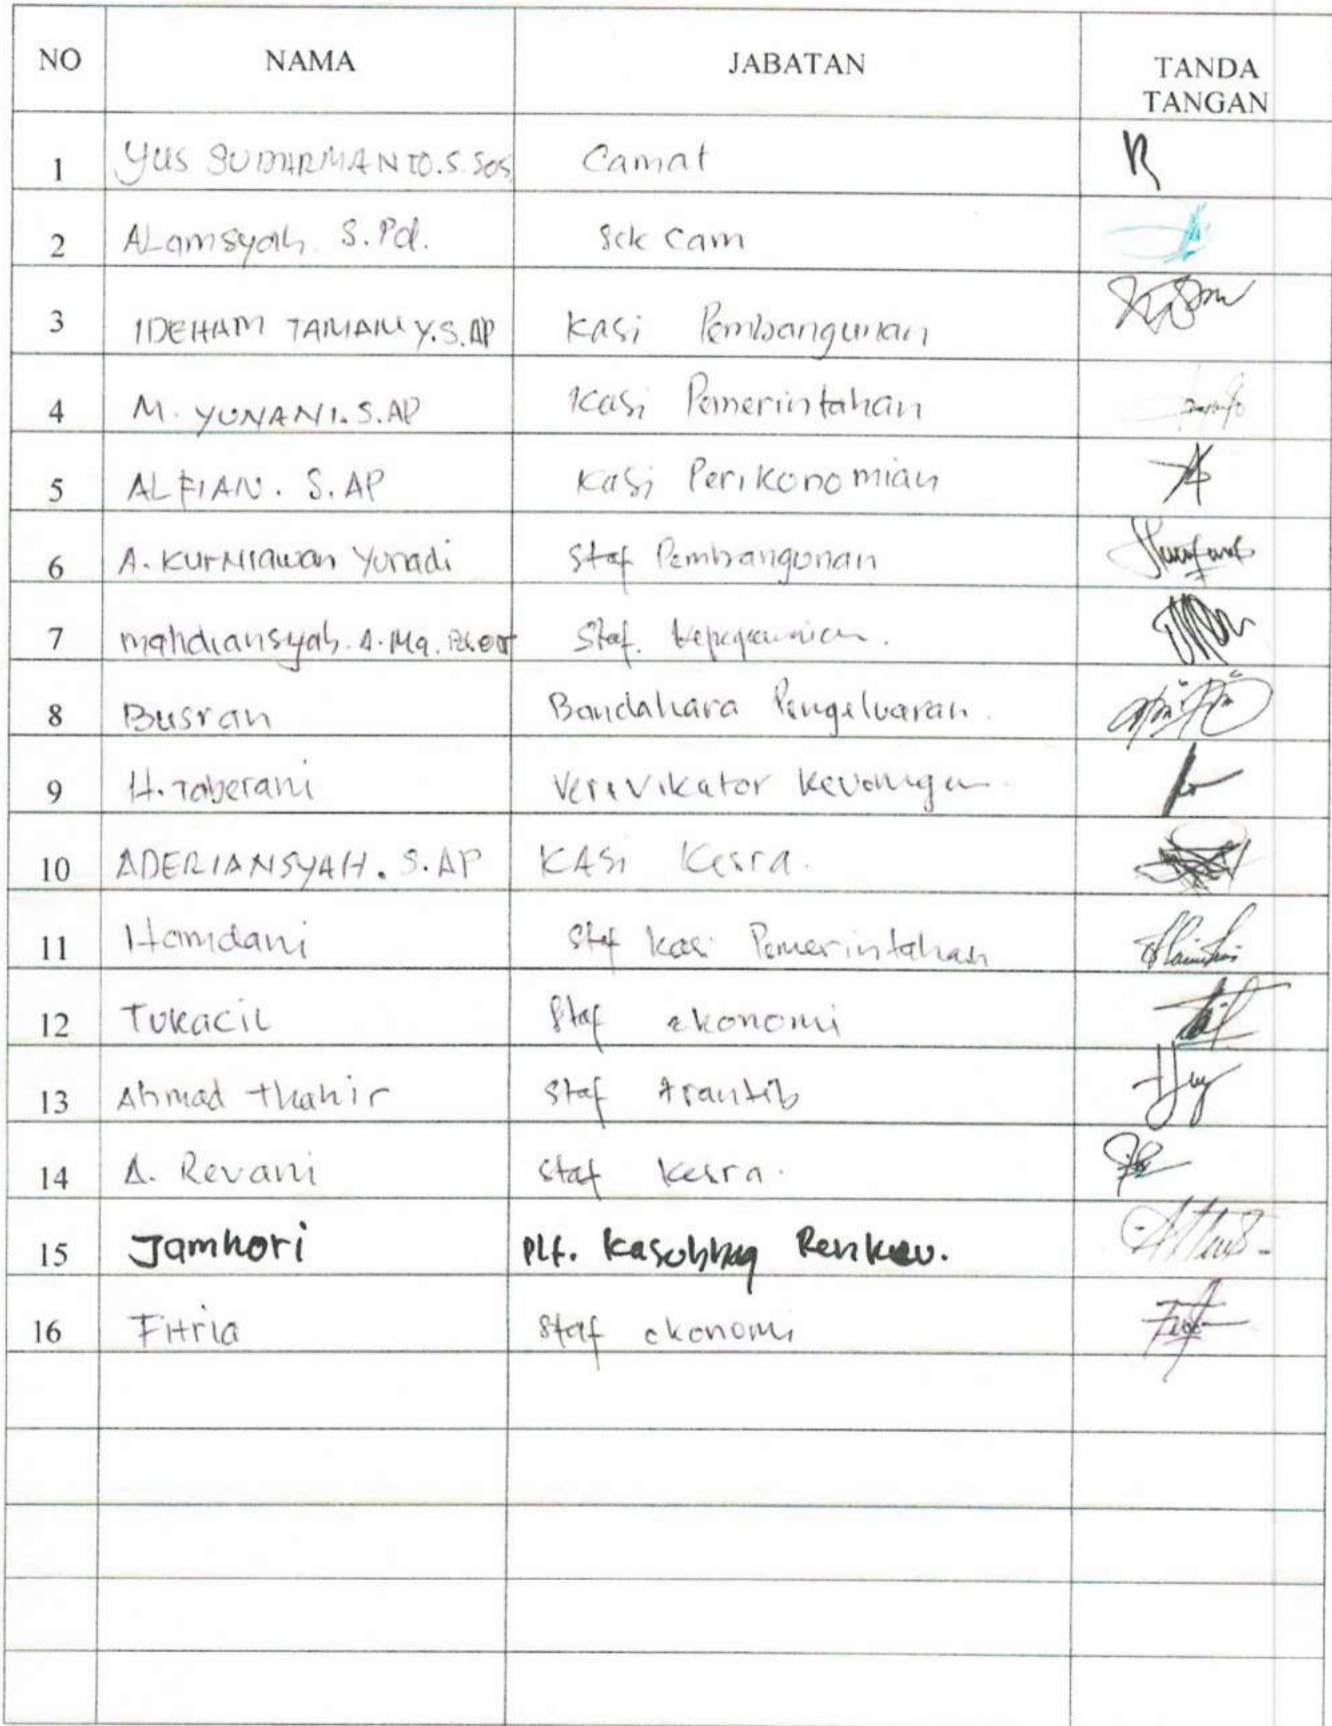 NO NAMA JABATAN TANDA TANGAN
1 YUS SUDIRMANTO.S.Sos Camat
2 ALamsyah S.Pd. Sek cam
3 IDEHAM TAMAMY.S.AP Kasi Pembangunan
4 M. YUNANI.S.AP Kasi Pemerintahan
5 ALFIAN. S.AP Kasi Perikonomian
6 A. KurNiawan Yunadi Staf Pembangunan
7 mahdiansyah. A.Ma. Staf. kepegawaian.
8 Busran Bandahara Pengeluaran.
9 H. Taberani Verivikator Keuangan.
10 ADERIANSYAH. S.AP KASi Kesra.
11 Hamdani Staf Kasi Pemerintahan
12 Tukacil Staf ekonomi
13 Ahmad thahir Staf trantib
14 A. Revani Staf Kesra.
15 Jamhori Plt. Kasubbag Renkeu.
16 Fitria Staf ekonomi